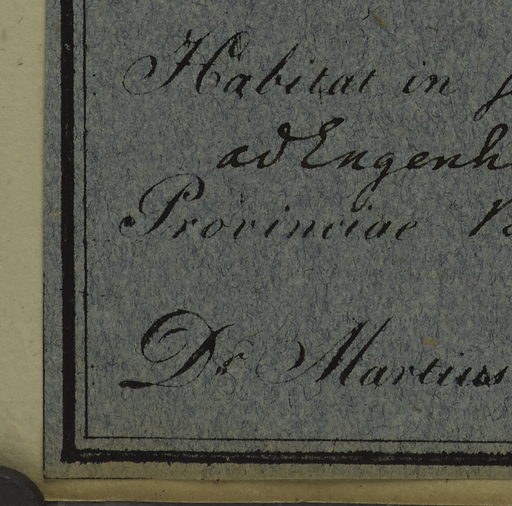 Habitat in
ad Engenh
Provinciae
Dr Martius